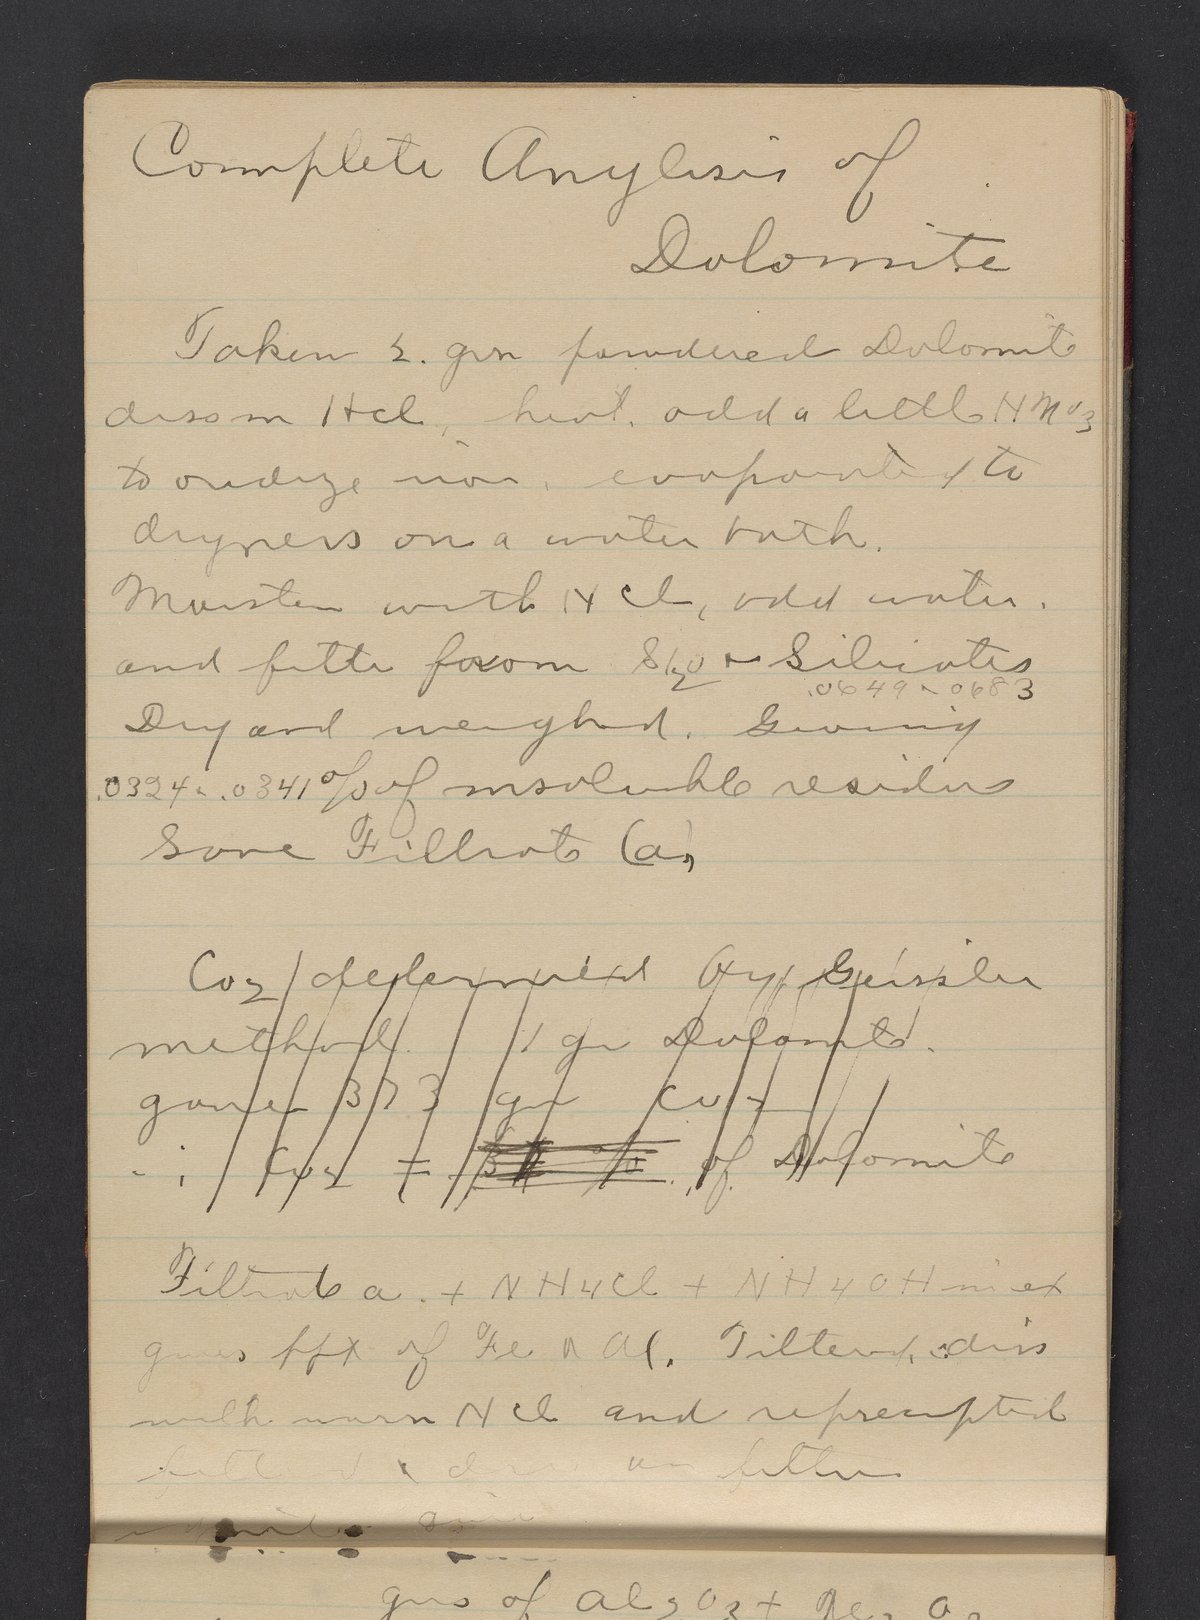 Complete Anylisis of
Dolomite
Taken 2. grm powdered Dolomite
diss in HCl, heat. add a little HNO3
to oxidize iron, evaporated to
dryness on a water bath.
Moisten with HCl, add water.
and filter from SiO2 Silicates
.0649 - .0683
Dry and weighed. Giving
.0324 - .0341 % of insoluble residue
Save Filtrate (a)
CO2 determined by Geissler
method. 1 gr Dolomite.
gave 373 gr CO2
CO2 = % of Dolomite
Filtrate a. + NH4Cl + NH4OH in ex
gives ppt of Fe & Al. Filtered, diss
with warm HCl and reprecipted
filter
gms of Al2O3 +